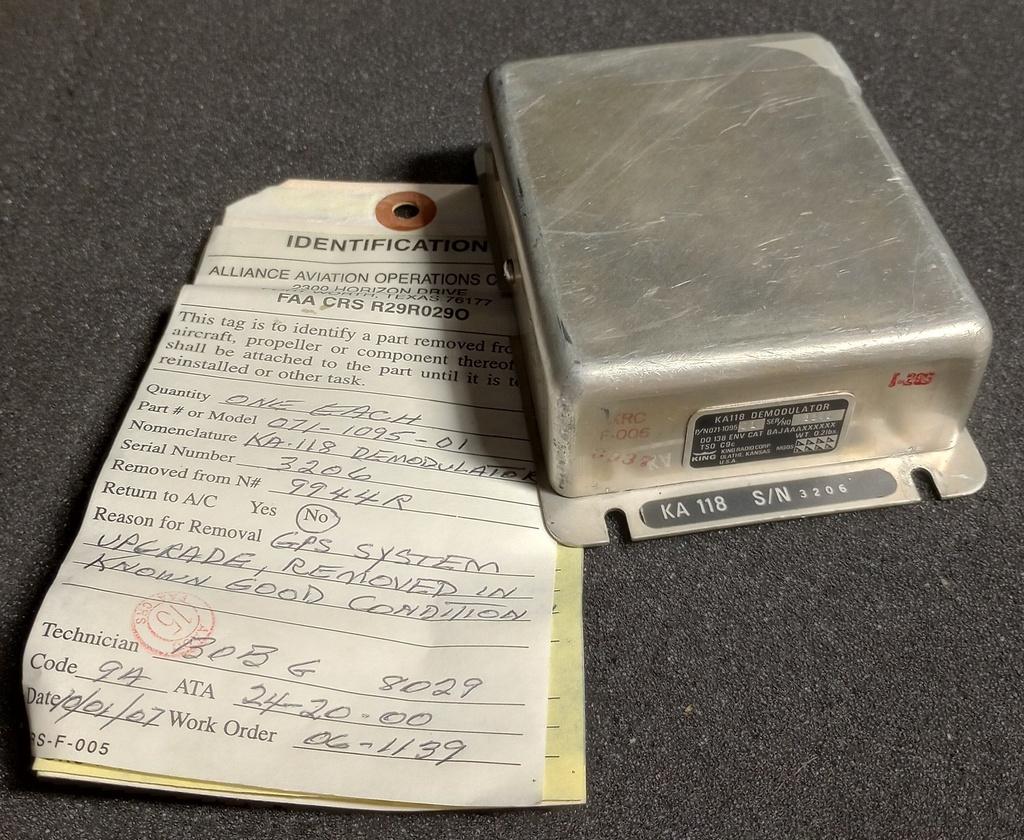 IDENTIFICATION
ALLIANCE AVIATION OPERATIONS C
2300 HORIZON DRIVE
TEXAS 76177
FAA CRS R29R029O
This tag is to identify a part removed fro
aircraft, propeller or component thereof
shall be attached to the part until it is t
reinstalled or other task.
Quantity ONE EACH
Part # or Model 071-1095-01
Nomenclature KA-118 DEMODULATOR
Serial Number 3206
Removed from N# 9944R
Return to A/C Yes No
Reason for Removal GPS SYSTEM
UPGRADE, REMOVED IN
KNOWN GOOD CONDITION
Technician BOB G 8029
Code 9A ATA 24-20-00
Date 10/01/07 Work Order 06-1139
RS-F-005
15
CRS
KRC
F-006
I-205
KA118 DEMODULATOR
P/N071-1095 SER/NO
DO 138 ENV CAT BAJAAAXXXXXX
TSO C9c WT 0.2lbs.
KING KING RADIO CORP. MODS
OLATHE, KANSAS
U.S.A.
KA 118 S/N 3206